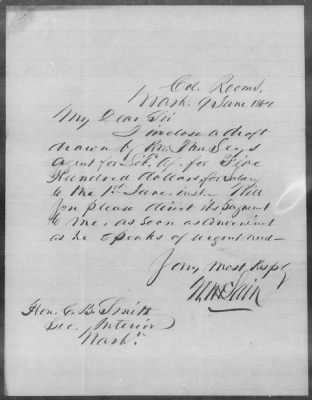 Col. Rooms,
Wash. 9 June 1862
My Dear Sir
I inclose a draft
drawn by Rev. Jno Seys
Agent for Lib. Af. for Five
Hundred dollars for Salary
to the 1st June, inst. Will
you please direct its payment
to me, as soon as convenient
as he speaks of urgent need—
Yours, most Resply
Hon. C. B. Smith
Sec. Interior
Wash.